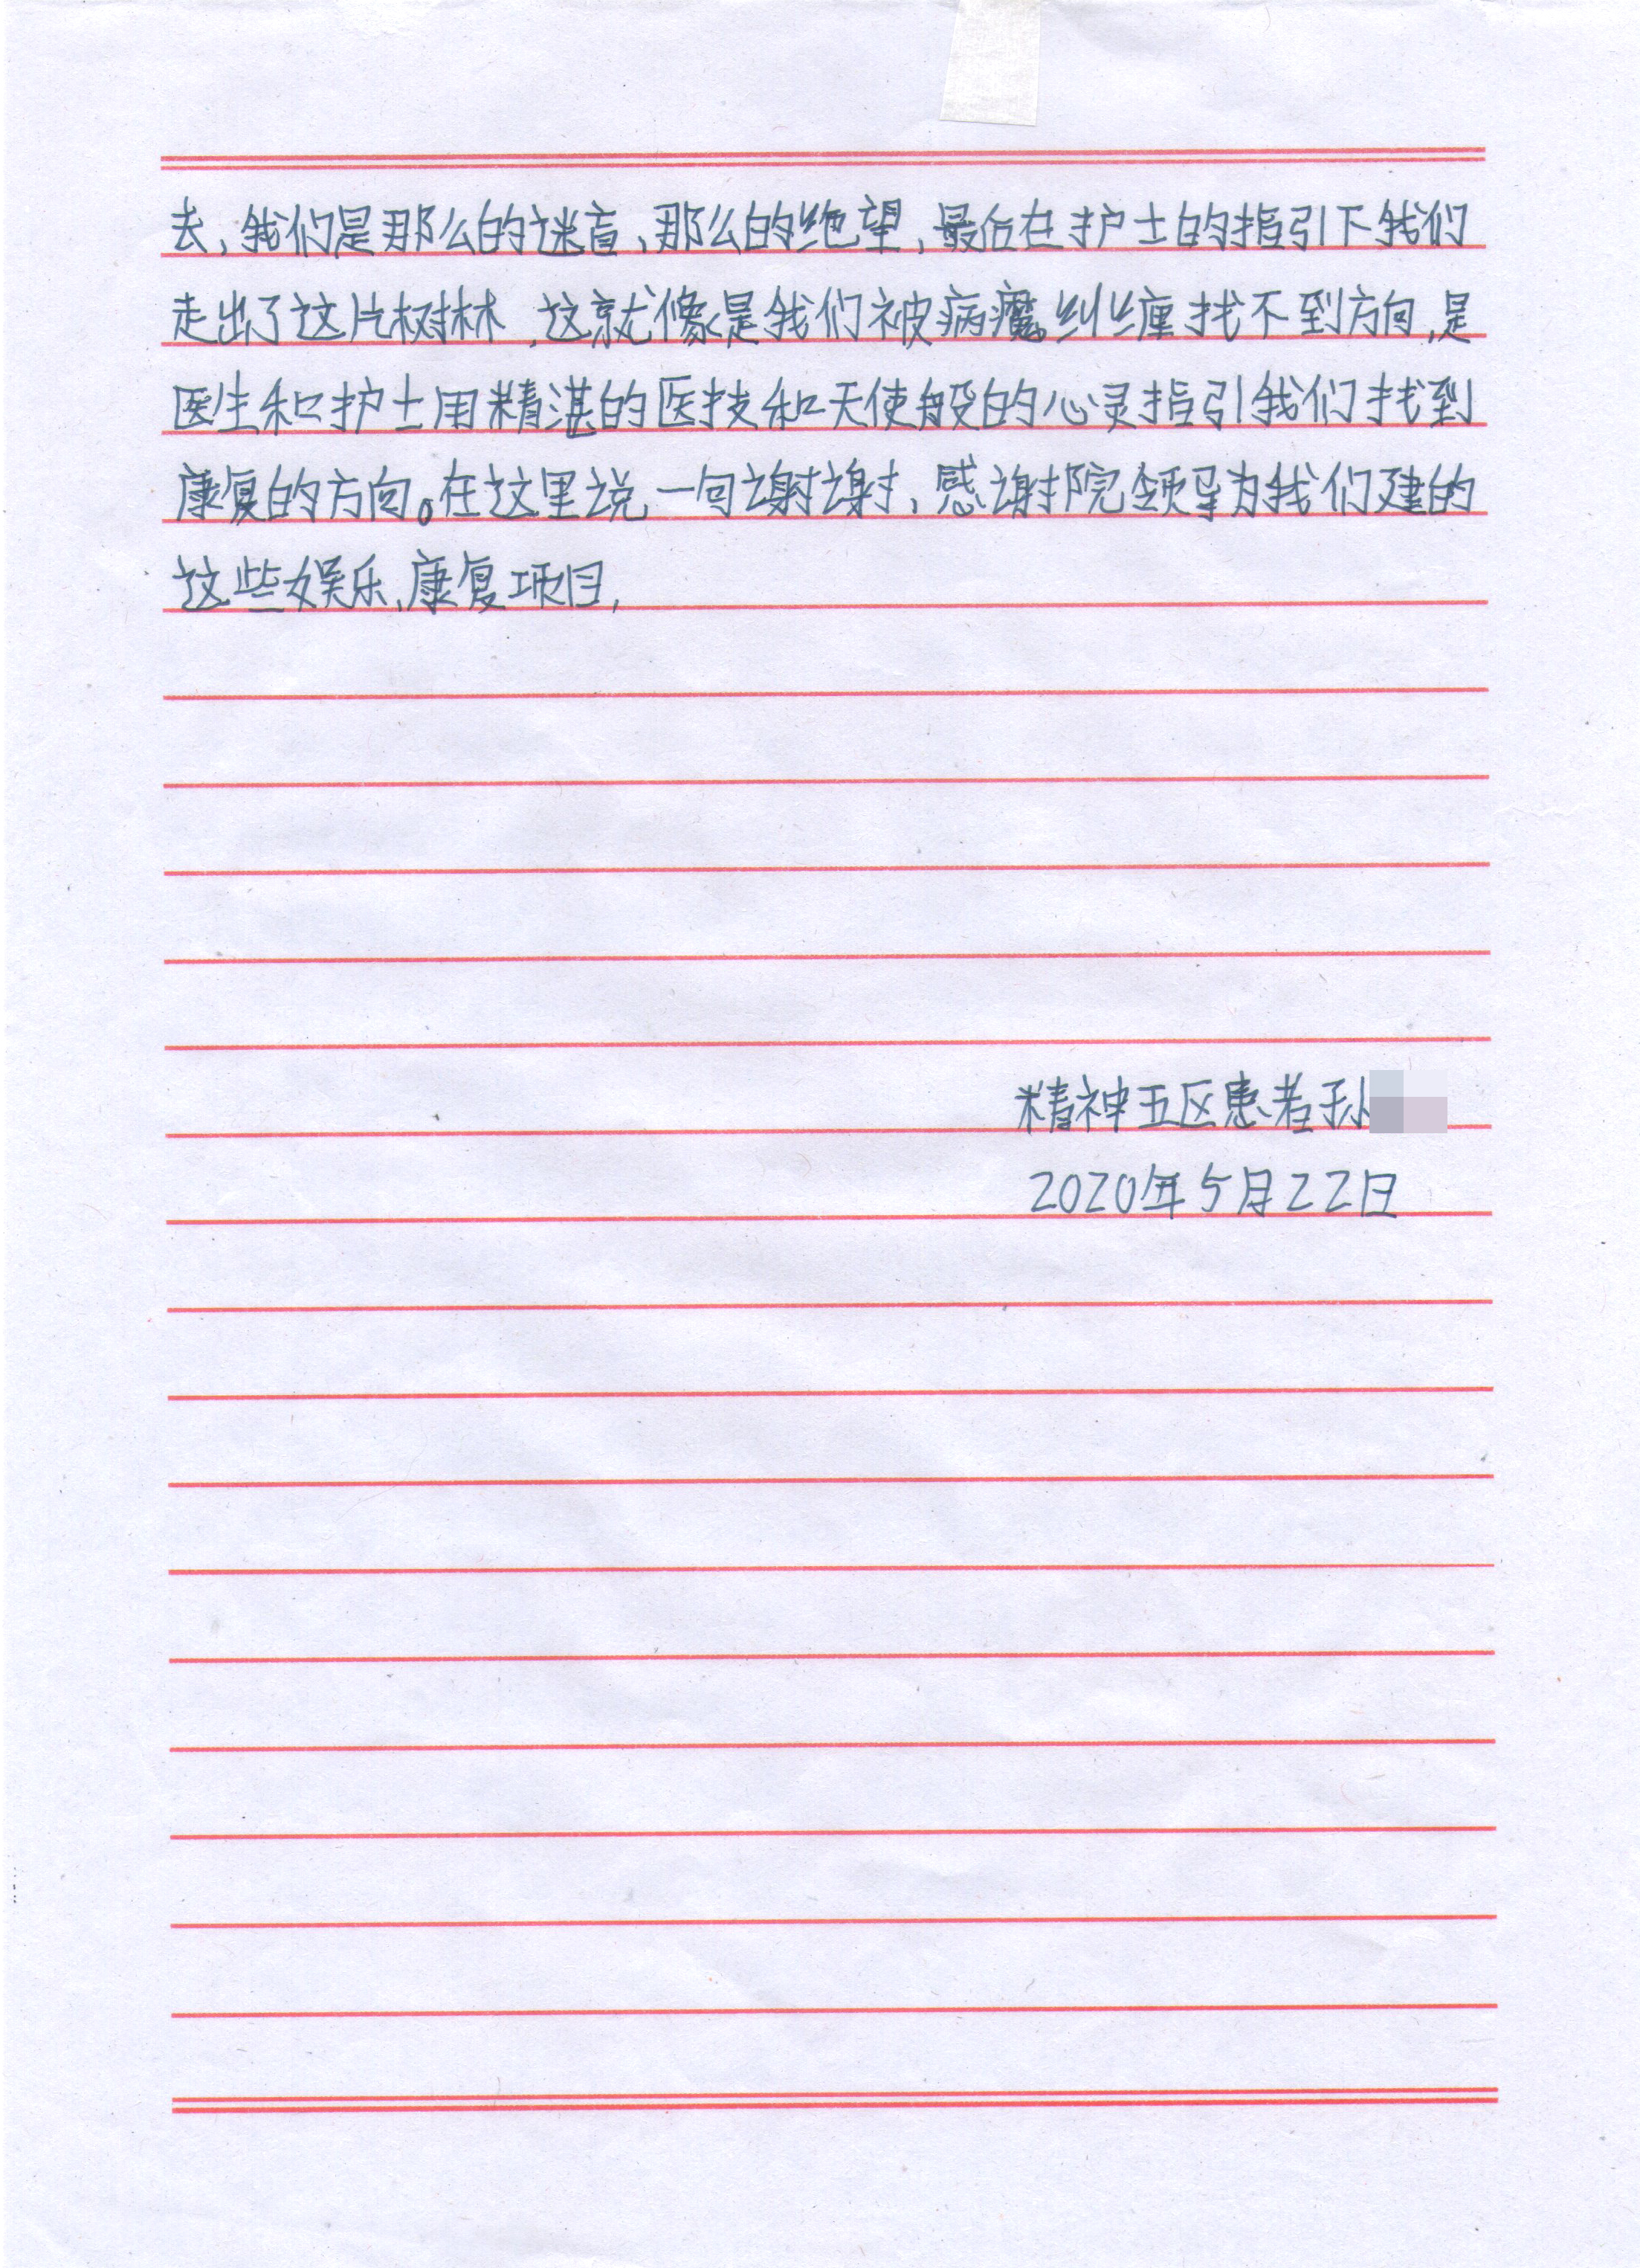 去,我们是那么的迷盲、那么的绝望,最后在护士的指引下我们
走出了这片树林,这就像是我们被病魔纠缠找不到方向,是
医生和护士用精湛的医技和天使般的心灵指引我们找到
康复的方向。在这里说一句谢谢、感谢院领导为我们建的
这些娱乐、康复项目,
精神五区患者孙
2020年5月22日